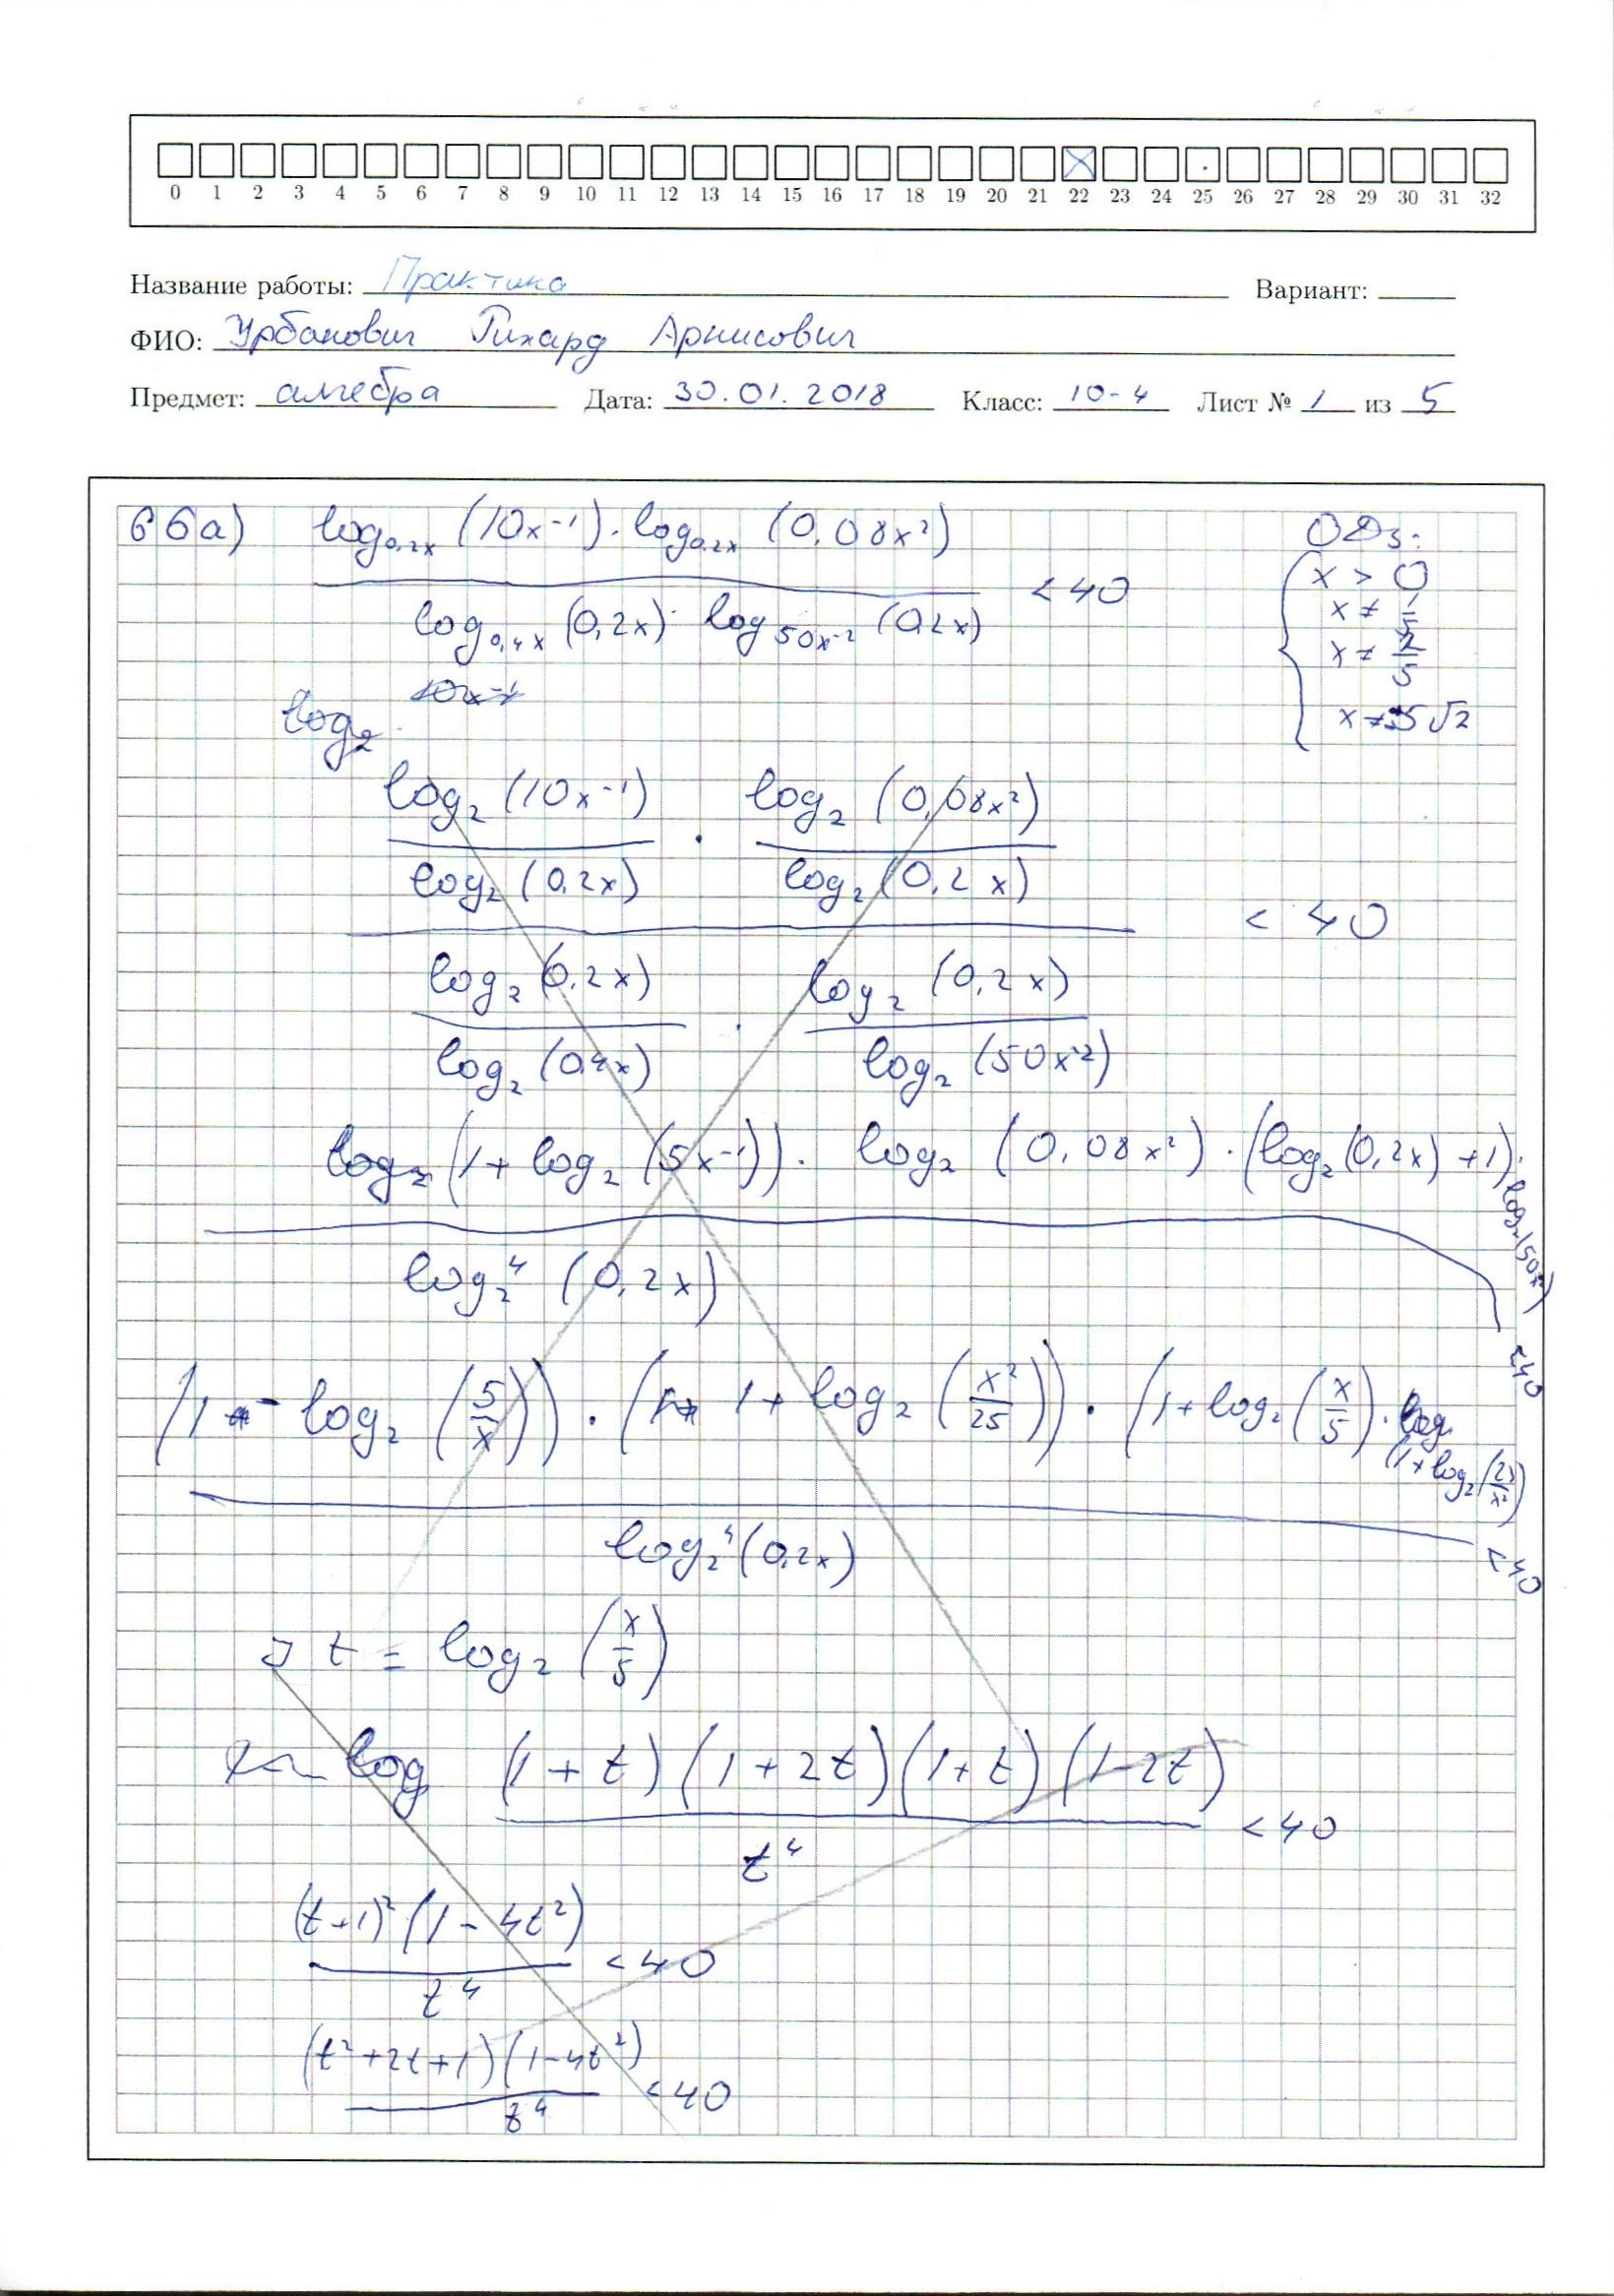 0 1 2 3 4 5 6 7 8 9 10 11 12 13 14 15 16 17 18 19 20 21 22 23 24 25 26 27 28 29 30 31 32
Название работы: Практика Вариант:
ФИО: Урбанович Рихард Арнисович
Предмет: алгебра Дата: 30.01.2018 Класс: 10-4 Лист № 1 из 5
66а) log₀,₂ₓ (10x⁻¹) · log₀,₂ₓ (0,08x²) ОДЗ:
< 40 x > 0
log₀,₄ₓ (0,2x) · log₅₀ₓ⁻² (0,2x) x ≠
x ≠ 2/5
x ≠ 5√2
log₂
log₂ (10x⁻¹) · log₂ (0,08x²)
log₂ (0,2x) log₂ (0,2x)
< 40
log₂ (0,2x) · log₂ (0,2x)
log₂ (0,4x) log₂ (50x⁻²)
(1 + log₂ (5x⁻¹)) · log₂ (0,08x²) · (log₂ (0,2x) + 1) ·
log₂⁴ (0,2x)
<40
(1 - log₂ (5/x)) · (1 + log₂ (x²/25)) · (1 + log₂ (x/5)) ·
(1 + log₂
log₂⁴ (0,2x)
<40
t = log₂ (x/5)
log (1 + t) (1 + 2t) (1 + t) (1 - 2t)
< 40
t⁴
(t+1)² (1 - 4t²)
< 40
t⁴
(t² + 2t + 1) (1 - 4t²)
< 40
t⁴